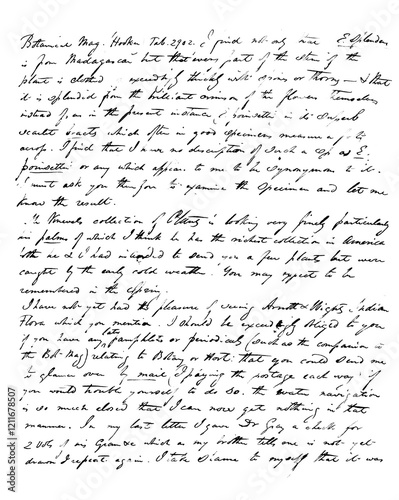 Botanical Mag. Hooker Tab. 2902. I find not only that E splendens
is from Madagascar but that every part of the stem of the
plant is clothed exceedingly thickly with spines or thorns — & that
it is splendid from the brilliant crimson of the flowers themselves
instead of as in the present instance E poinsettii in its superb
scarlet bracts which often in good specimens measure a foot
across. I find that I have no description of such a sp. as E.
poinsettii or any which appears to me to be synonymous to it.
I must ask you therefore to examine the specimen and let me
know the result.
collection of is looking very finely particularly
in palms of which I think he has the richest collection in America
& I had intended to send you a few plants but were
caught by the early cold weather. You may expect to be
remembered in the spring.
I have not yet had the pleasure of seeing Arnott & Wights Indian
Flora which you mention. I should be exceedingly obliged to you
if you have any late pamphlets or periodicals (such as the companion to
the Bot. Mag) relating to Botany or Hort: that you could send me
to glance over by mail I paying the postage each way if
you would trouble yourself to do so. the water navigation
is so much closed that I can now get nothing in that
manner. In my last letter I gave Dr Gray a check for
2 Vols of his Gram & which as my brother tells me is not yet
drawn I repeat again. I take shame to myself that it was